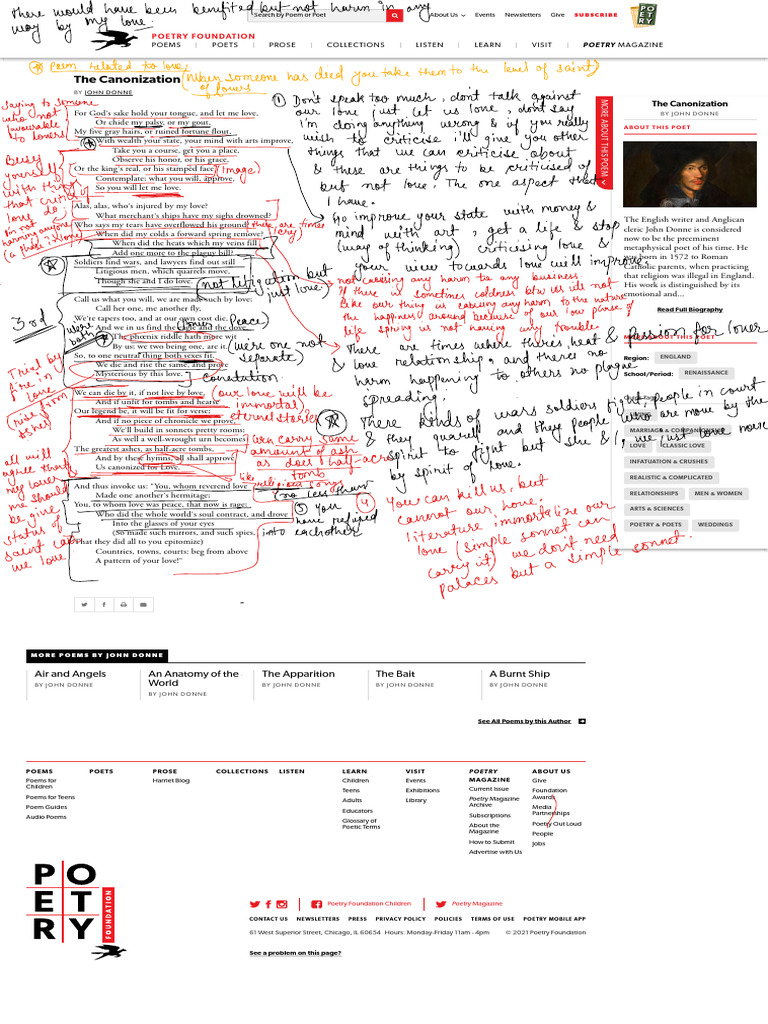 there would have been benefited but not harm in any
way by my love.
Search by Poem or Poet
About Us
Events
Newsletters
Give
SUBSCRIBE
POETRY
POETRY FOUNDATION
POEMS
POETS
PROSE
COLLECTIONS
LISTEN
LEARN
VISIT
POETRY MAGAZINE
Poem related to love
The Canonization (When someone has died you take them to the level of saint)
of lovers
BY JOHN DONNE
For God's sake hold your tongue, and let me love,
Or chide my palsy, or my gout,
My five gray hairs, or ruined fortune flout,
With wealth your state, your mind with arts improve,
Take you a course, get you a place,
Observe his honor, or his grace,
Or the king's real, or his stamped face (image)
Contemplate; what you will, approve,
So you will let me love.
Alas, alas, who's injured by my love?
What merchant's ships have my sighs drowned?
Who says my tears have overflowed his ground? there are times
I cry
When did my colds a forward spring remove?
When did the heats which my veins fill
Add one more to the plaguy bill?
Soldiers find wars, and lawyers find out still
Litigious men, which quarrels move,
Though she and I do love. (not litigation but
just love)
Call us what you will, we are made such by love;
Call her one, me another fly,
We're tapers too, and at our own cost die,
(power Peace)
And we in us find the eagle and the dove.
The phoenix riddle hath more wit
By us; we two being one, are it. (we're one not
separate)
So, to one neutral thing both sexes fit.
We die and rise the same, and prove
Mysterious by this love.
We can die by it, if not live by love, (our love will be
immortal,
And if unfit for tombs and hearse
eternal stories
Our legend be, it will be fit for verse;
And if no piece of chronicle we prove,
We'll build in sonnets pretty rooms;
As well a well-wrought urn becomes (urn carry same
The greatest ashes, as half-acre tombs, amount of ash
And by these hymns, all shall approve as does half-acre
tomb
Us canonized for Love.
like religious songs
And thus invoke us: "You, whom reverend love (no less than
Made one another's hermitage;
You, to whom love was peace, that now is rage;
Who did the whole world's soul contract, and drove
Into the glasses of your eyes
(So made such mirrors, and such spies, into eachother
That they did all to you epitomize)
Countries, towns, courts: beg from above
A pattern of your love!"
saying to someone
who not
favourable
to lovers
Busy
yourself
with things
that
love
i'm not
harming anyone
3rd
were
both
Trial by
fire in
love
(rise from
ashes)
all will
agree that
my lovers
me should
be give
status of
saint
we love
① Don't speak too much, dont talk against
our love just let us love, dont say
i'm doing anything wrong & if you really
wish to criticise i'll give you other
things that we can criticise about
& these are things to be criticised of
but not love. The one aspect that
I have.
Go improve your state with money &
mind with art, get a life & stop
(way of thinking) criticising love &
your view towards love will improve.
not causing any harm to any business
If there is sometimes coldness btw us its not
like our thing is causing any harm to the nature
the happiness around because of our low phase of
life spring is not having any trouble.
There are times where theres heat & passion for lover
& love relationship, and theres no
harm happening to others no plague
spreading.
There kinds of wars soldiers fight people in court
& they quarrel and they people who are move by the
spirit to fight but she & I, we just love move
by spirit of love.
④ You can kill us, but
cannot our love.
literature immortalize our
love (simple sonnet can
carry it) we don't need
palaces but a simple sonnet.
MORE ABOUT THIS POEM
The Canonization
BY JOHN DONNE
ABOUT THIS POET
The English writer and Anglican
cleric John Donne is considered
now to be the preeminent
metaphysical poet of his time. He
was born in 1572 to Roman
Catholic parents, when practicing
that religion was illegal in England.
His work is distinguished by its
emotional and...
Read Full Biography
MORE ABOUT THIS POET
Region: ENGLAND
School/Period: RENAISSANCE
MARRIAGE & COMPANIONSHIP
LOVE
CLASSIC LOVE
INFATUATION & CRUSHES
REALISTIC & COMPLICATED
RELATIONSHIPS
MEN & WOMEN
ARTS & SCIENCES
POETRY & POETS
WEDDINGS
MORE POEMS BY JOHN DONNE
Air and Angels
BY JOHN DONNE
An Anatomy of the
World
BY JOHN DONNE
The Apparition
BY JOHN DONNE
The Bait
BY JOHN DONNE
A Burnt Ship
BY JOHN DONNE
See All Poems by this Author
POEMS
Poems for
Children
Poems for Teens
Poem Guides
Audio Poems
POETS
PROSE
Harriet Blog
COLLECTIONS
LISTEN
LEARN
Children
Teens
Adults
Educators
Glossary of
Poetic Terms
VISIT
Events
Exhibitions
Library
POETRY
MAGAZINE
Current Issue
Poetry Magazine
Archive
Subscriptions
About the
Magazine
How to Submit
Advertise with Us
ABOUT US
Give
Foundation
Awards
Media
Partnerships
Poetry Out Loud
People
Jobs
POETRY
FOUNDATION
Poetry Foundation Children
Poetry Magazine
CONTACT US
NEWSLETTERS
PRESS
PRIVACY POLICY
POLICIES
TERMS OF USE
POETRY MOBILE APP
61 West Superior Street, Chicago, IL 60654 Hours: Monday-Friday 11am - 4pm
© 2021 Poetry Foundation
See a problem on this page?